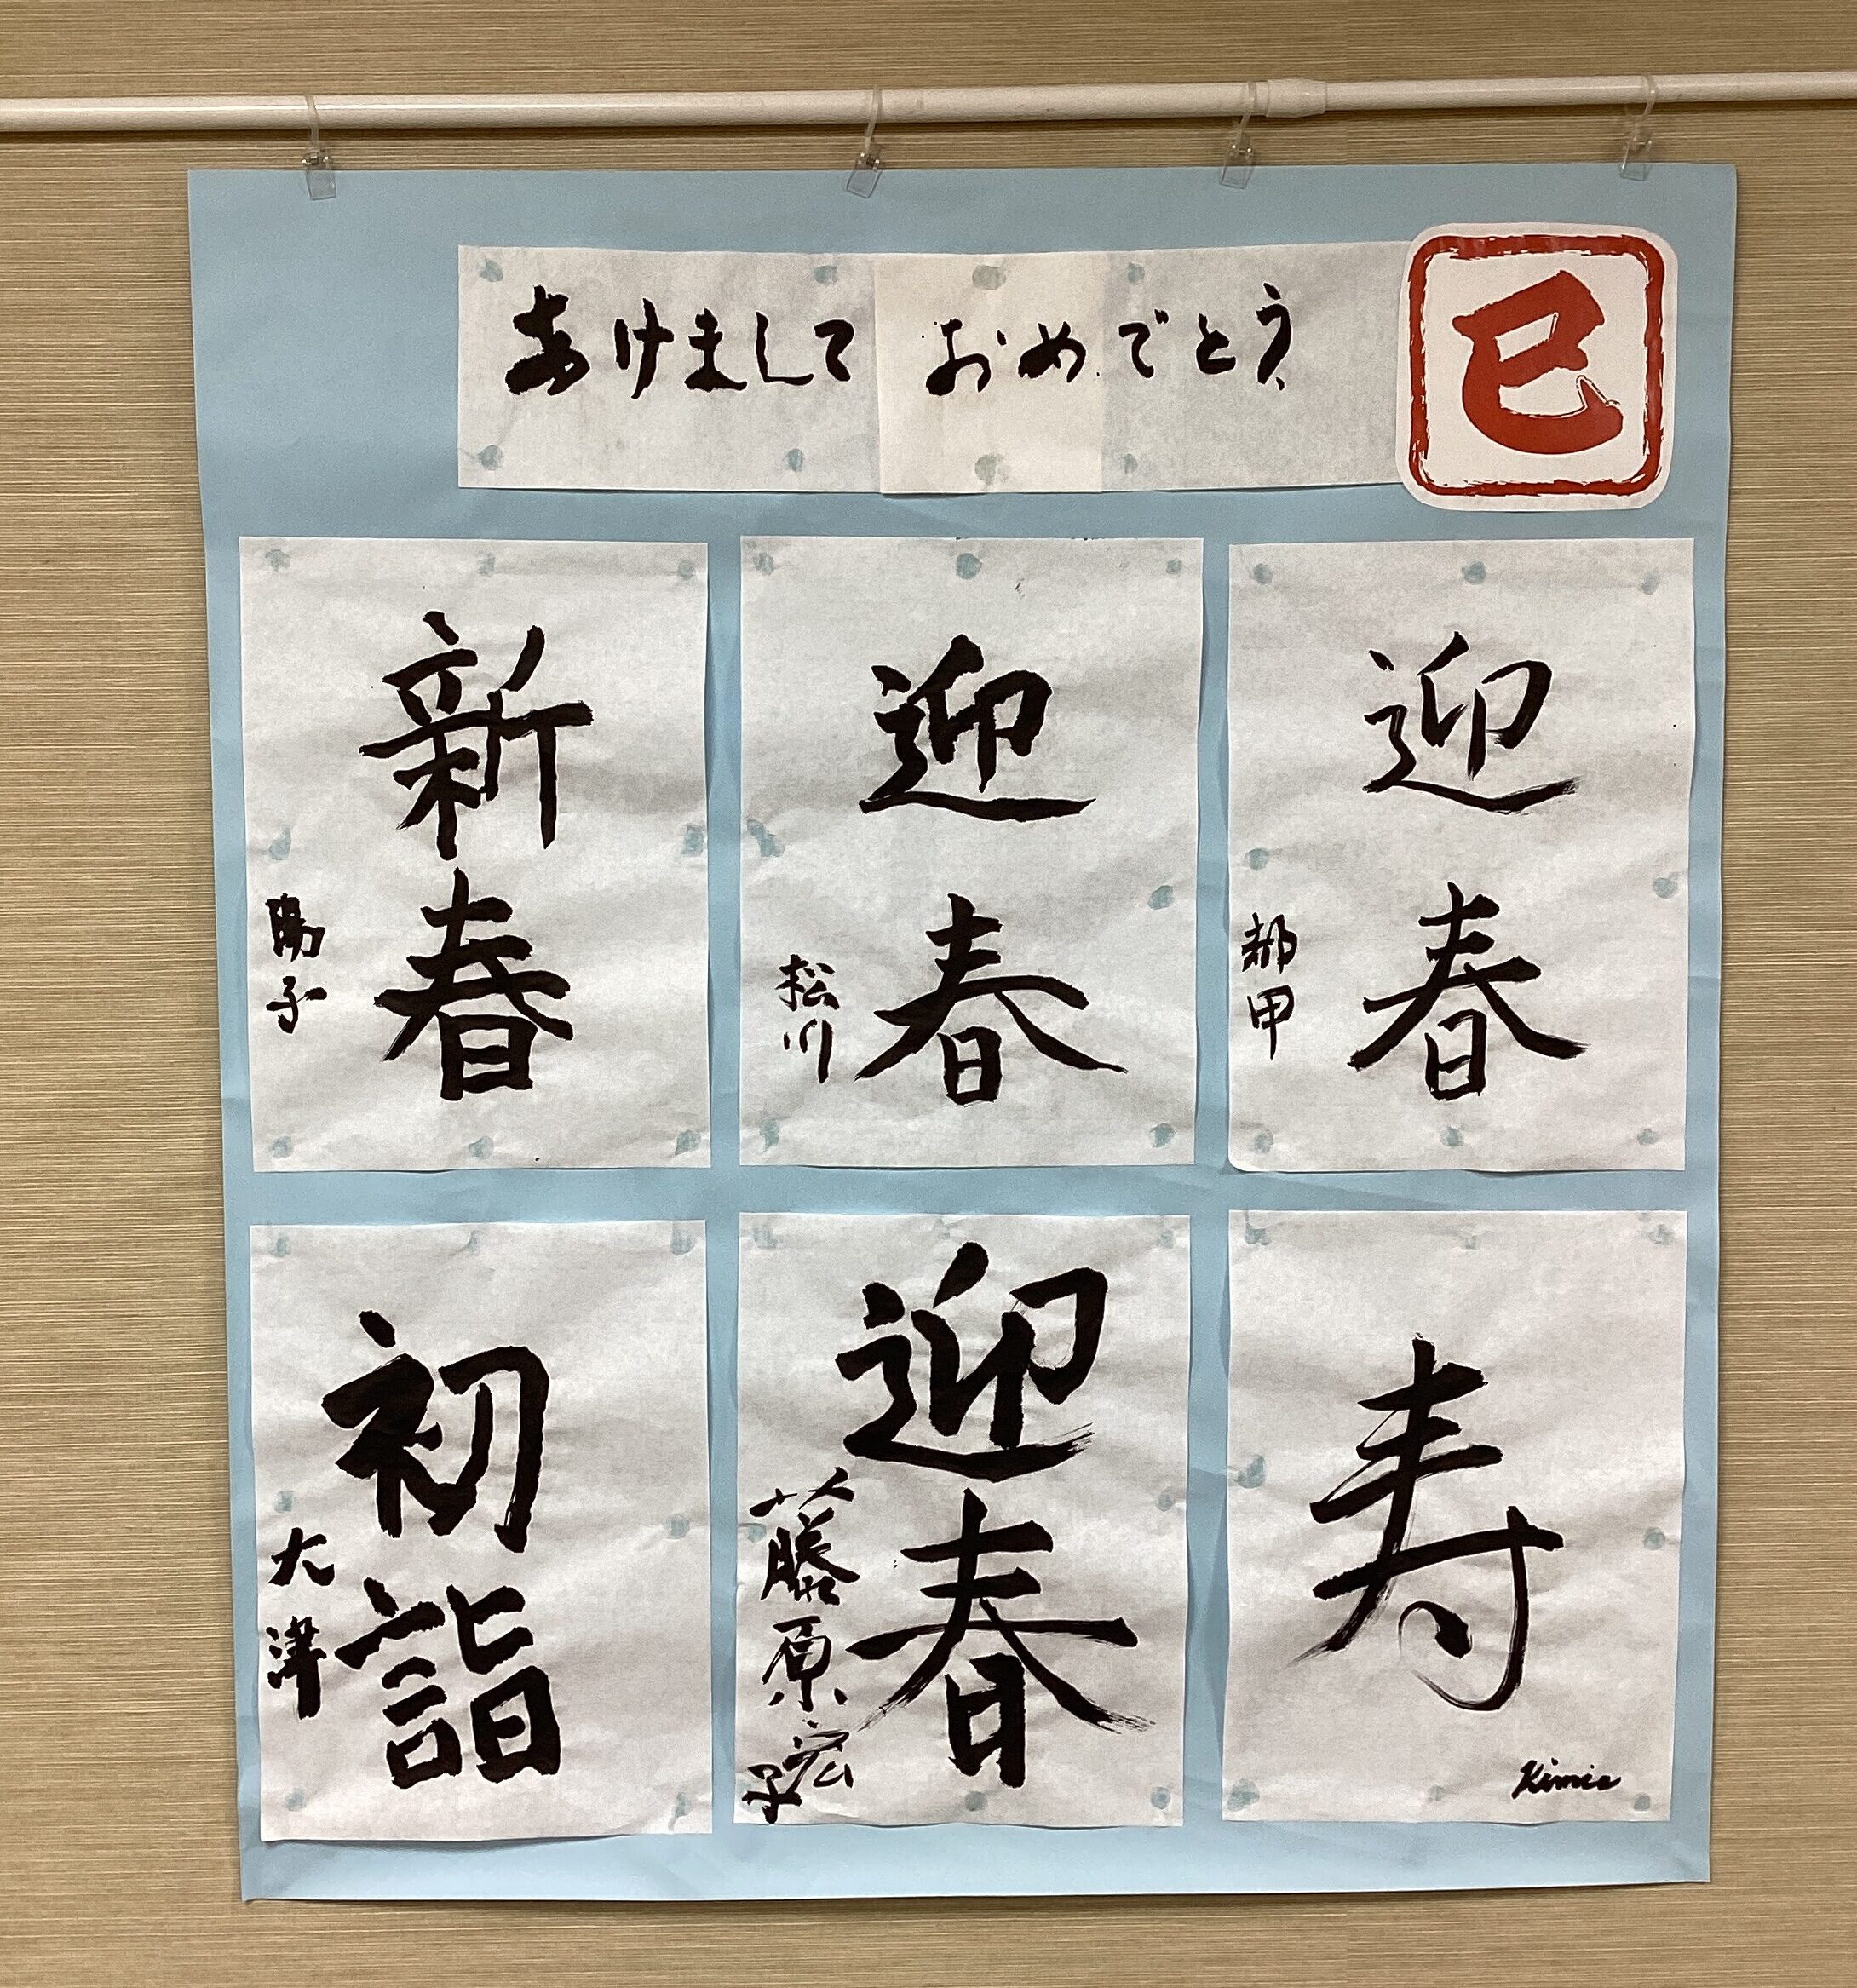 あけまして おめでとう
巳
新春
陽子
迎春
松川
迎春
初詣
大澤
迎春
藤原宏子
寿
Kimie